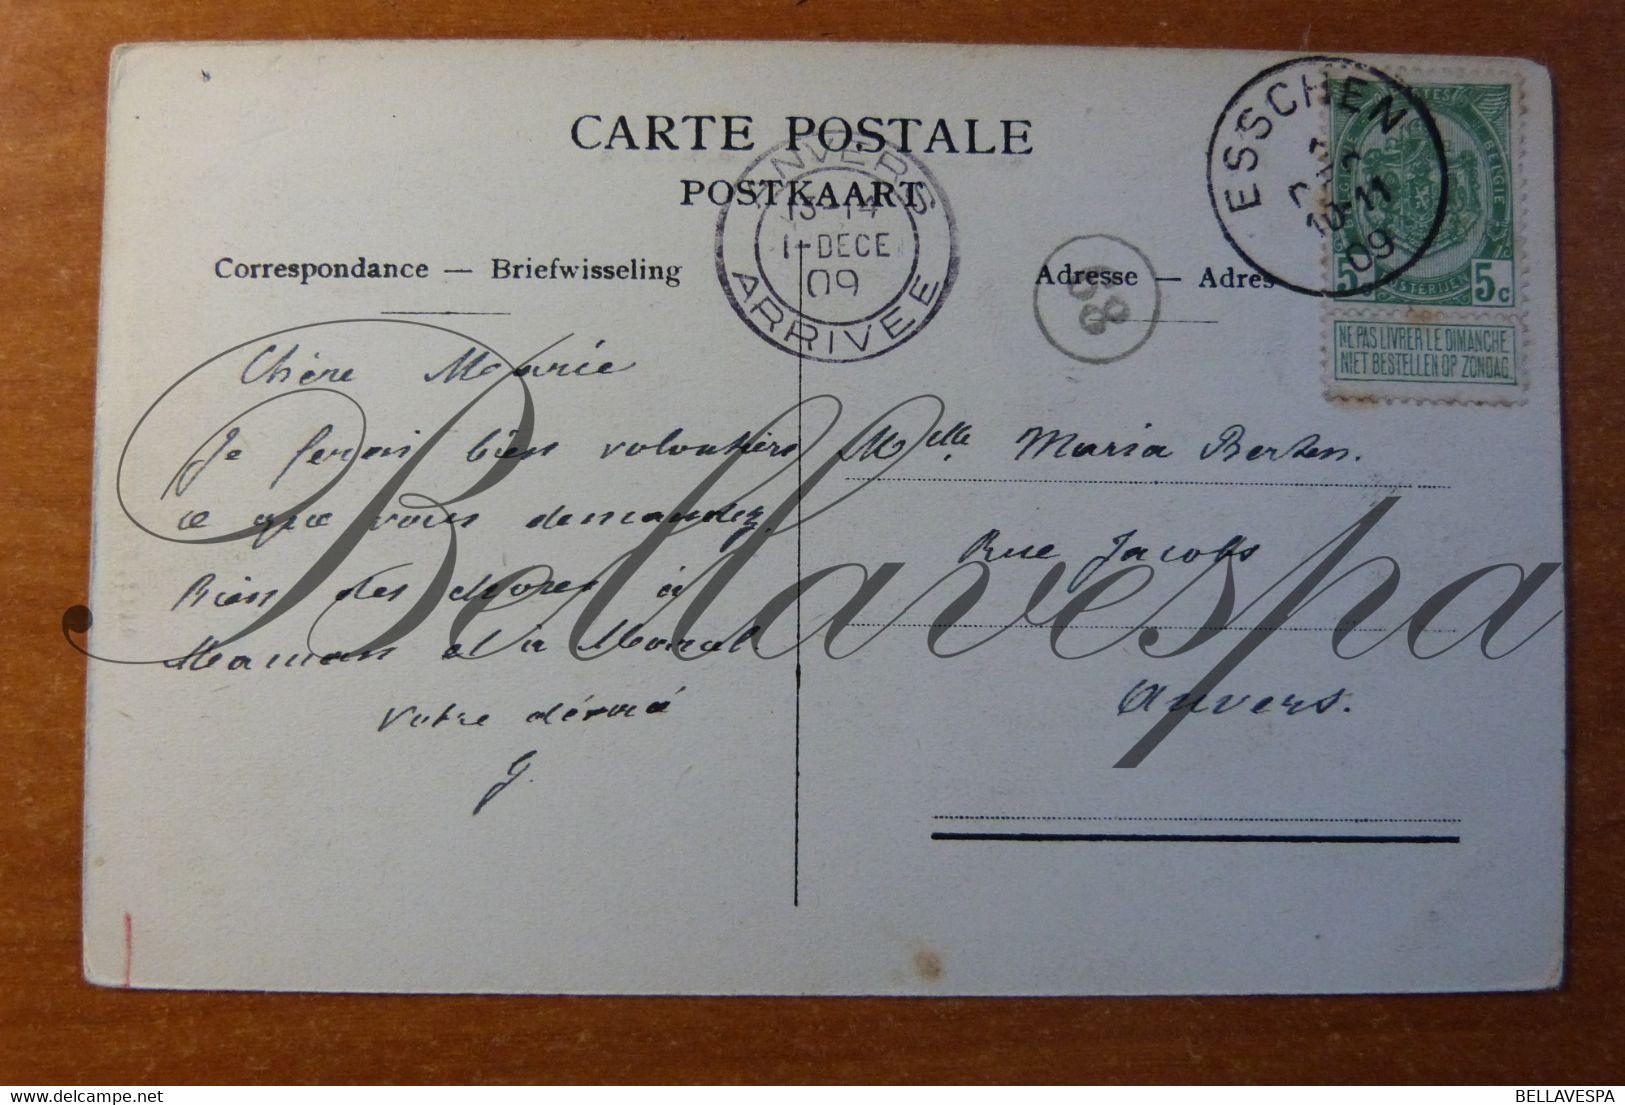 CARTE POSTALE
POSTKAART
ANVERS
13-14
1-DECE
09
ARRIVEE
ESSCHEN
10-11
09
BELGIE
5c
5c
NE PAS LIVRER LE DIMANCHE
NIET BESTELLEN OP ZONDAG.
Correspondance — Briefwisseling
Adresse — Adres
Chère Marie
Je ferais bien volontiers
ce que vous demandez.
Bien des choses à
Maman et à Marcel
Votre dévoué
G.
Melle. Maria Berten.
Rue Jacobs
Anvers.
Bellavespa
delcampe.net
BELLAVESPA